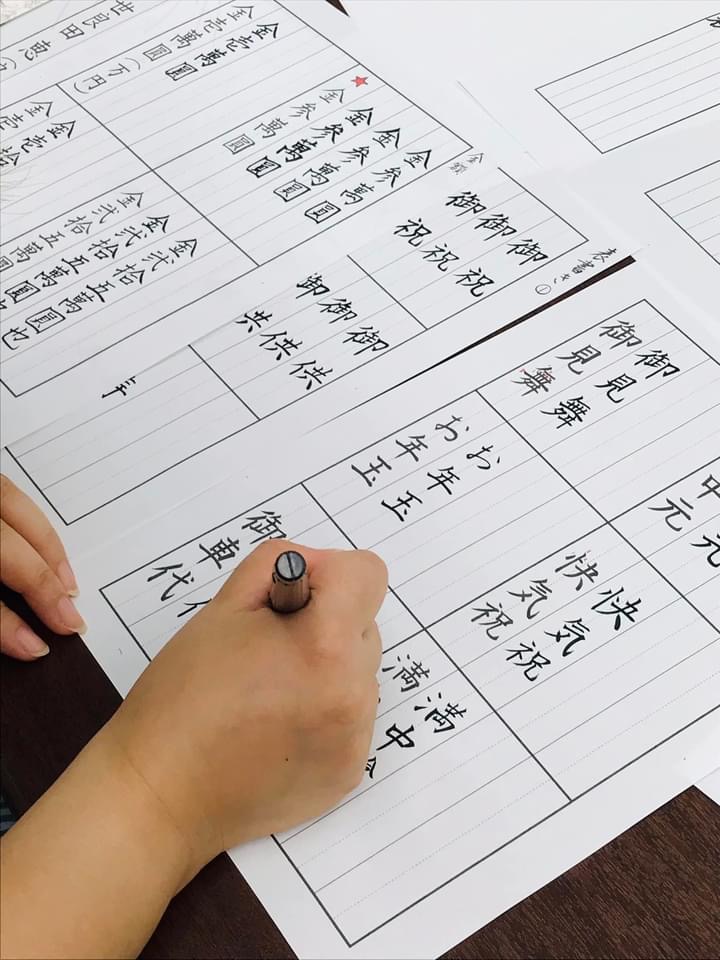 金額
金壱萬圓
金壱萬圓(万円)
世良田 恵
金参萬圓
金参萬圓
金参萬圓
金参萬圓
金壱拾
金壱拾
金弐拾五萬圓也
金弐拾五萬圓
金弐拾五萬圓
表書き①
御祝
御祝
御祝
御供
御供
御供
御見舞
御見舞
中元
元
お年玉
お年玉
快気祝
快気祝
御車代
代
満中
満